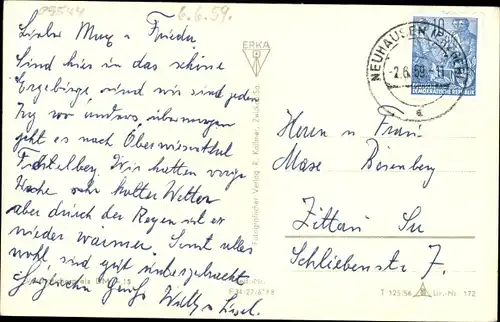 P9544
6.6.59.
Lieber Max u Frieda
Sind hier in das schöne
Erzgebirge und wir sind jeden
Tag wo anders, übermorgen
geht es nach Oberwiesenthal
Fichtelberg. Wir hatten vorige
Woche sehr kaltes Wetter
aber durch den Regen ist es
wieder wärmer. Sonst alles
wohl sind gut untergebracht
Herzlichen Gruß Willy u. Liesel.
ERKA
Fotografischer Verlag R. Kallmer, Zwickau Sa.
NEUHAUSEN
-2.6.59.-11
a
10
DEUTSCHE
DEMOKRATISCHE REPUBLIK
Herrn u Frau
Max Dörenberg
Zittau Sa
Schliebenstr 7.
DM
Best.-Nr.
T 125/56 Liz.-Nr. 172